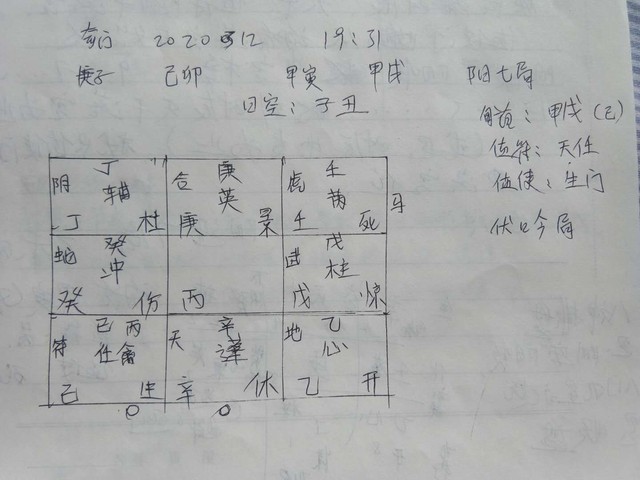 奇门 2020 03 12 19:31
庚子 己卯 甲寅 甲戌 阳七局
日空:子丑
旬首:甲戌(己)
值符:天任
值使:生门
伏吟局
阴 丁 合 庚 虎 壬
辅 英 芮 马
丁 杜 庚 景 壬 死
蛇 癸 戊
冲 柱
癸 伤 丙 戊 惊
符 己丙 天 辛 地 乙
任禽 蓬 心
己 生 辛 休 乙 开
O O